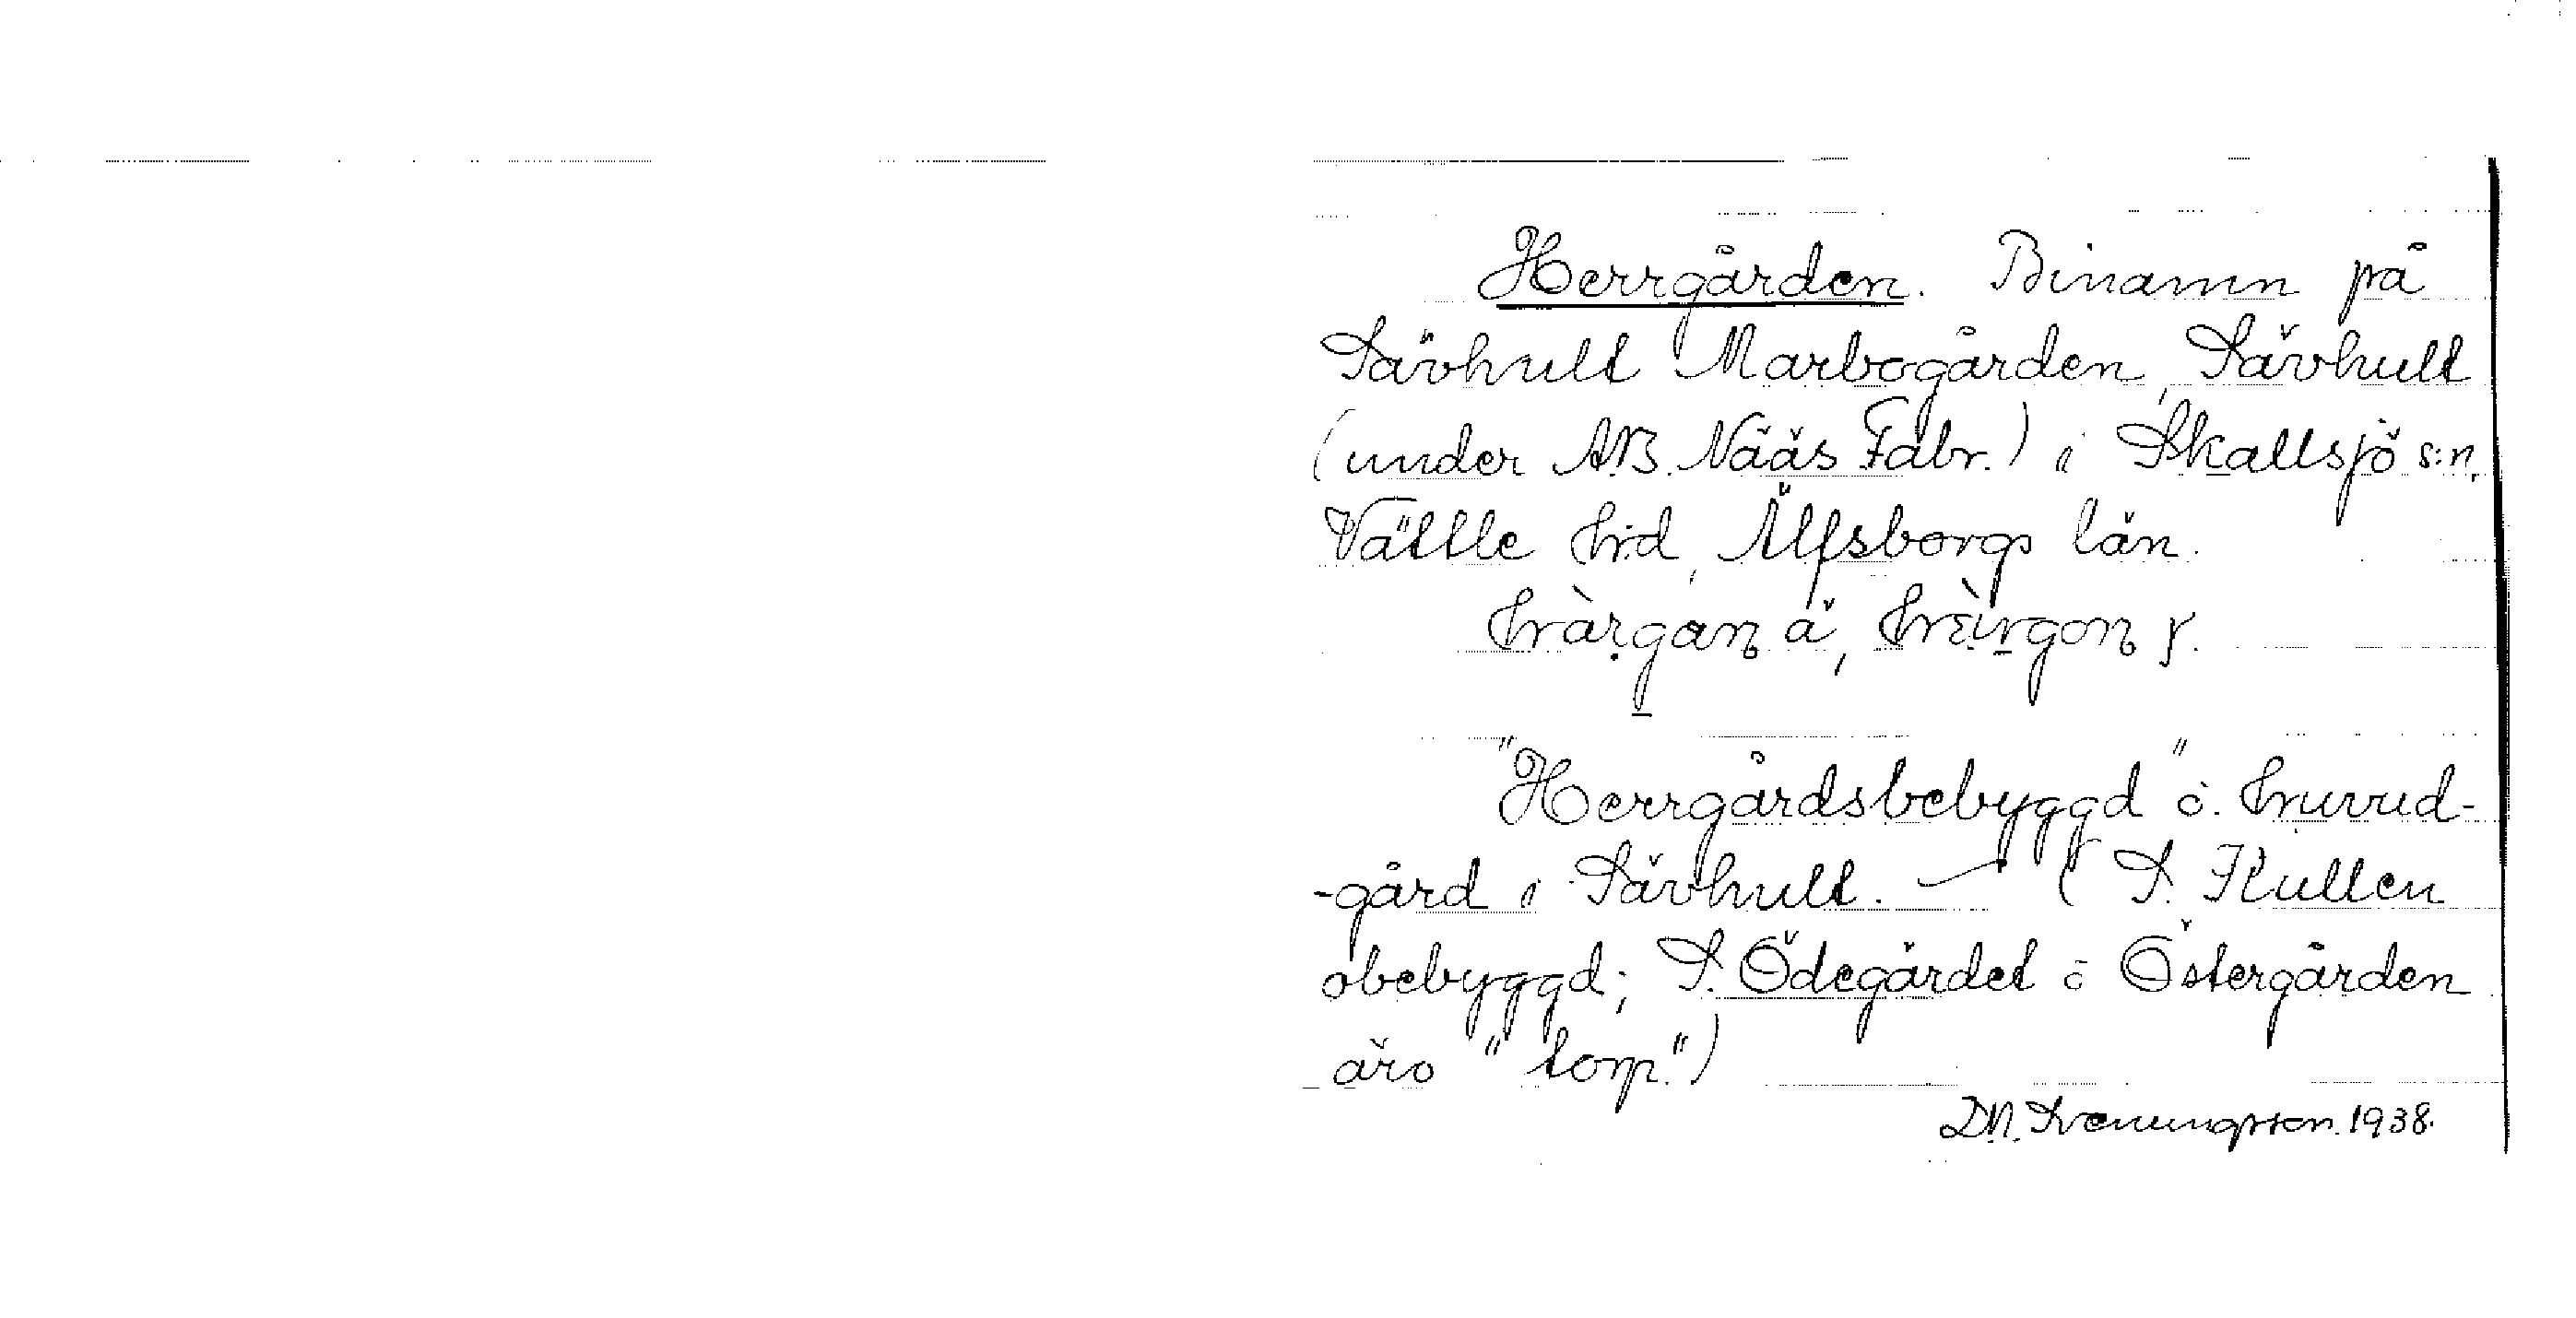 Herrgården. Binamn på
Sävhult Marbogården, Sävhult
(under A.B. Nääs Fabr.) i Skallsjö s:n,
Vättle hd, Älfsborgs län.
"Herrgårdsbebyggd" o. huvud-
-gård i Sävhult. — (S. Kullen
obebyggd; S. Ödegärdet o Östergården
äro "torp.")
D.N. Svenungsson. 1938.